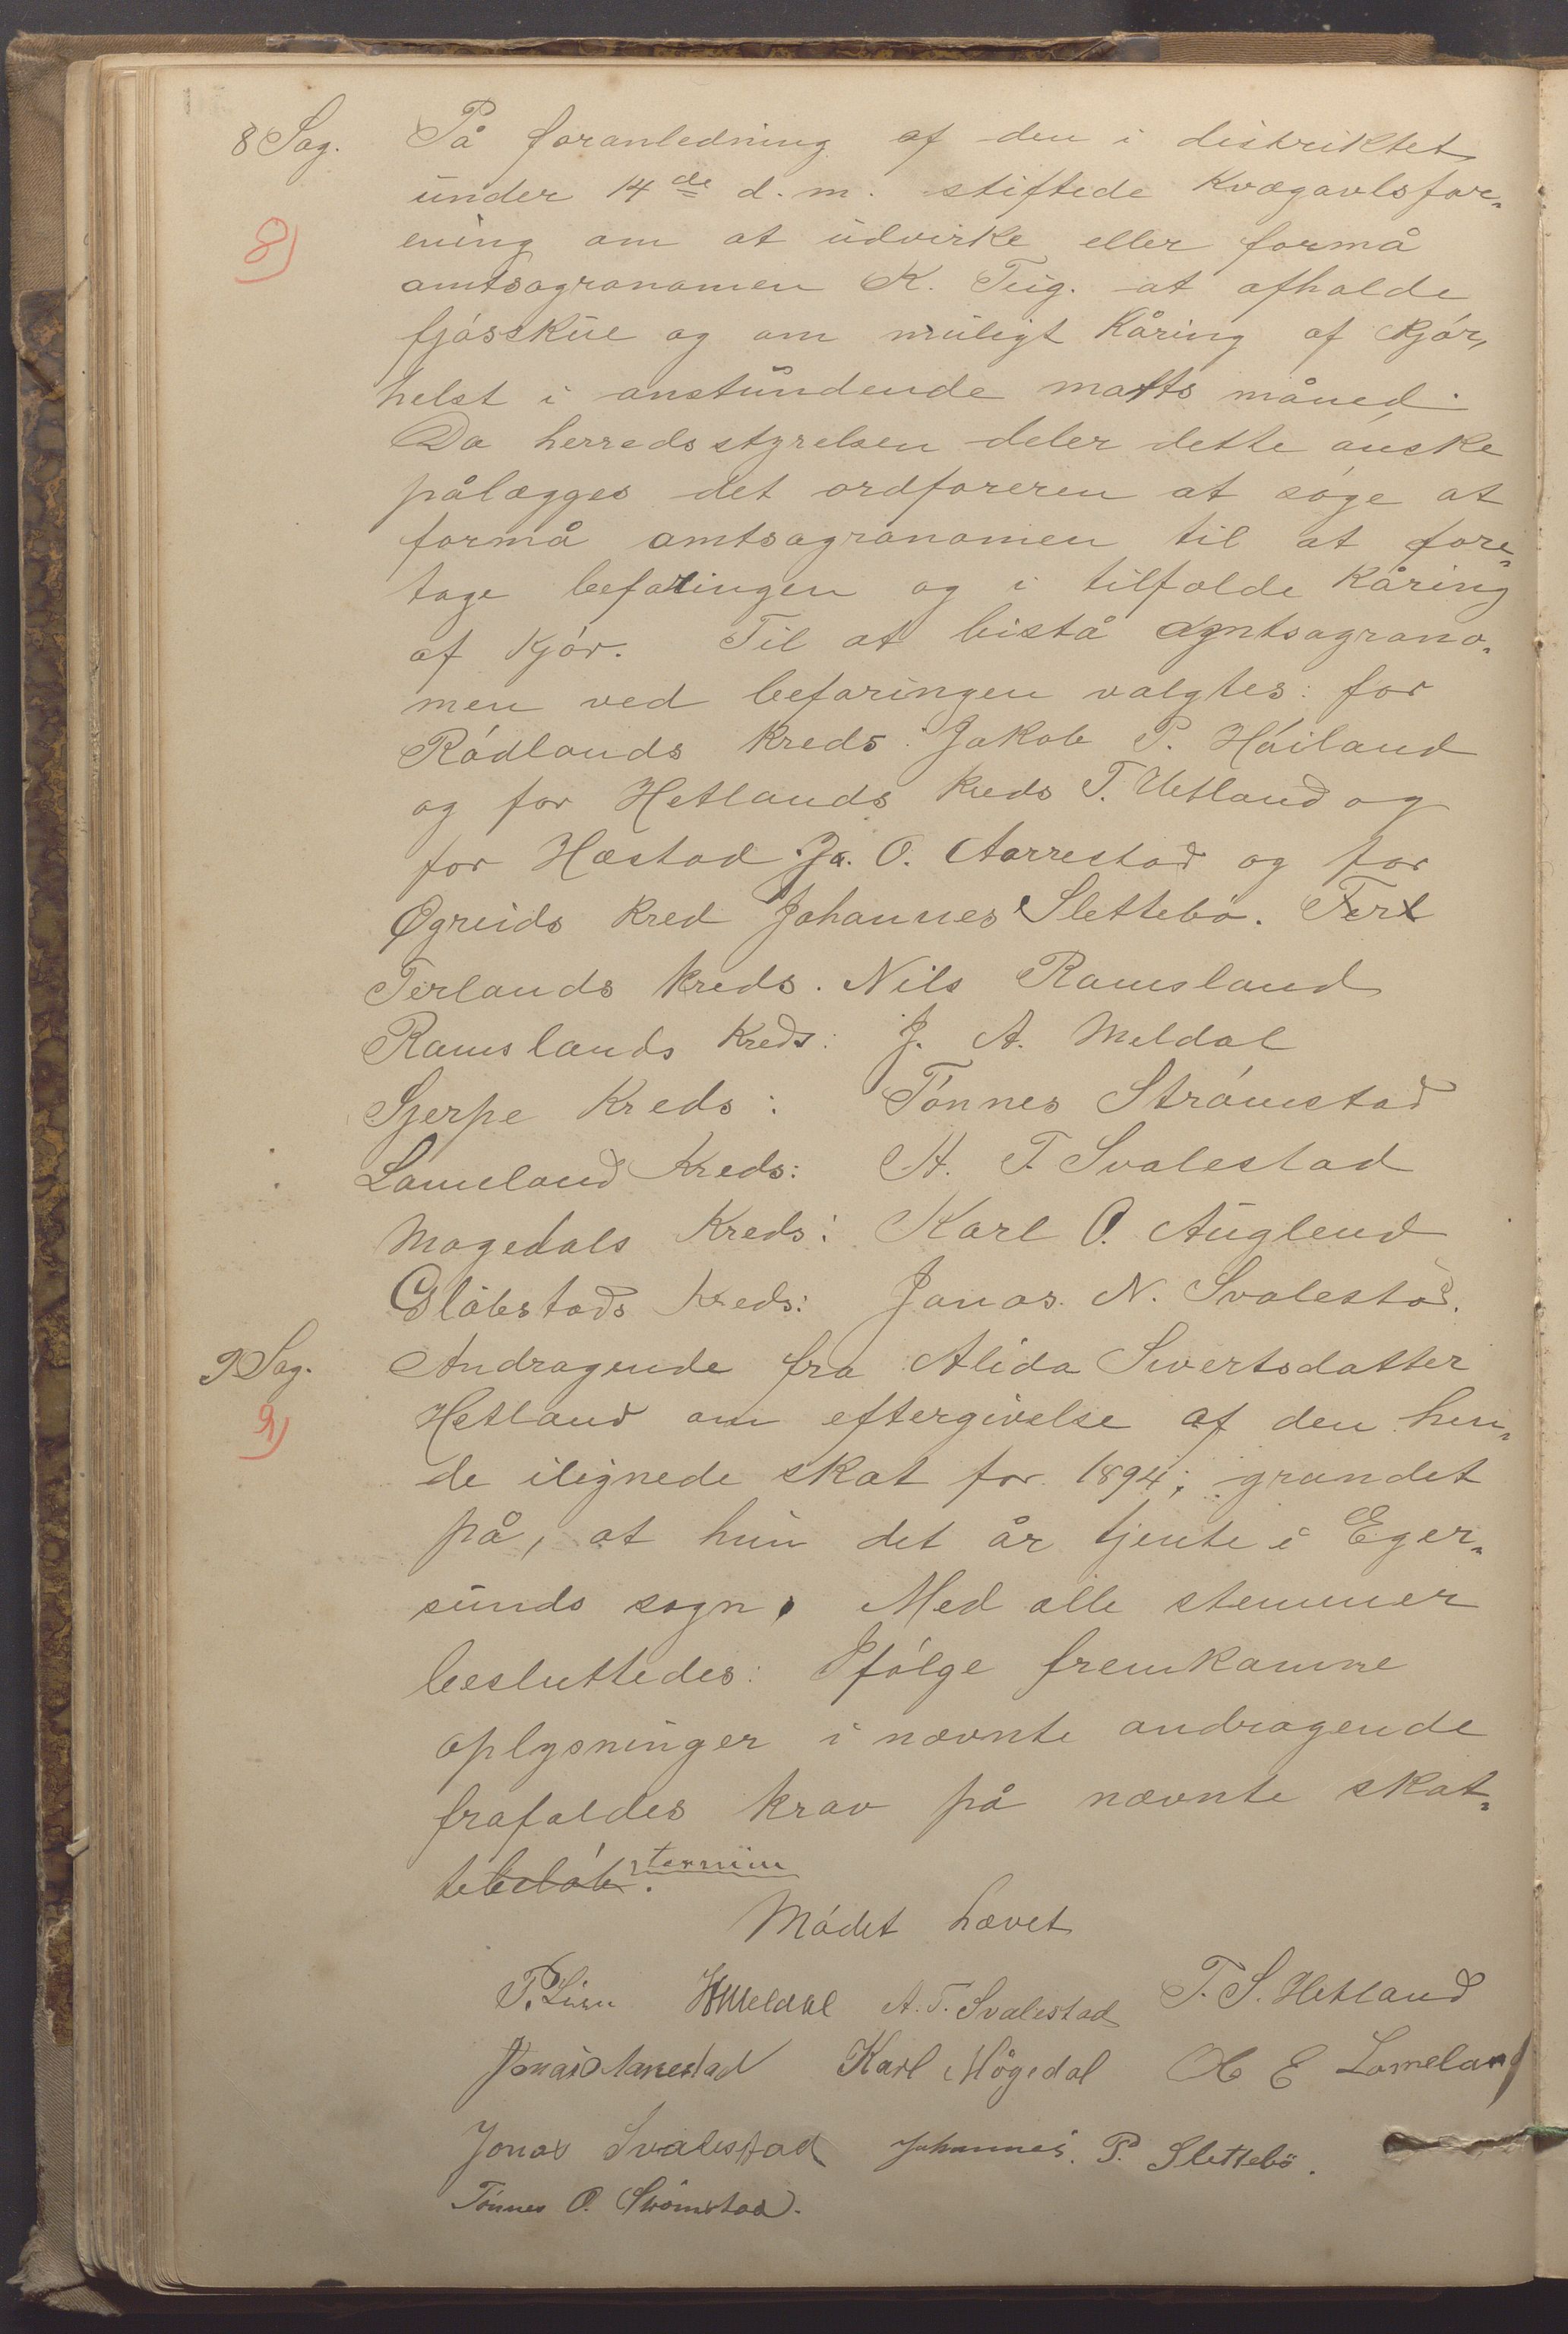 8 Sag. På foranledning af den i distriktet
under 14de d. m. stiftede Kvægavlsfor-
8)
ening om at udvirke eller formå
amtsagronomen K. Teig. at afholde
fjósskue og om muligt Kåring af Kjór,
helst i anstundende marts måned.
Da herredsstyrelsen deler dette ónske
pålægges det ordføreren at sóge at
formå amtsagronomen til at fore-
tage befaringen og i tilfælde Kåring
af Kjór. Til at bistå amtsagrono-
men ved befaringen valgtes: for
Ródlands Kreds: Jakob P. Hóiland
og for Hetlands Kreds T. Hetland og
for Hæstad Jo. O. Aarrestad og for
Øgreids Kred Johannes Slettebö. Terl
Terlands Kreds. Nils Ramsland
Ramslands Kreds: J. A. Meldal
Sjerpe Kreds: Tónnes Strómstad
Lomeland Kreds: A. T. Svalestad
Mogedals Kreds: Karl O. Auglend
Glóbstads Kreds: Jonas. N. Svalestad.
9 Sag. Andragende fra Alida Sivertsdatter
9)
Hetland om eftergivelse af den hen-
de ilignede skat for 1894; grundet
på, at hun det år tjente i Eger-
sunds sogn. Med alle stemmer
besluttedes: Ifólge fremkomne
oplysninger i nævnte andragende
frafaldes krav på nævnte skat-
tebelób. termin
Módet hævet
P. Lien Meldal A. T. Svalestad T. S. Hetland
Jonas Aarrestad Karl Mógedal O E Lomeland
Jonas Svalestad Johannes. P. Slettebö.
Tónnes O. Strömstad.